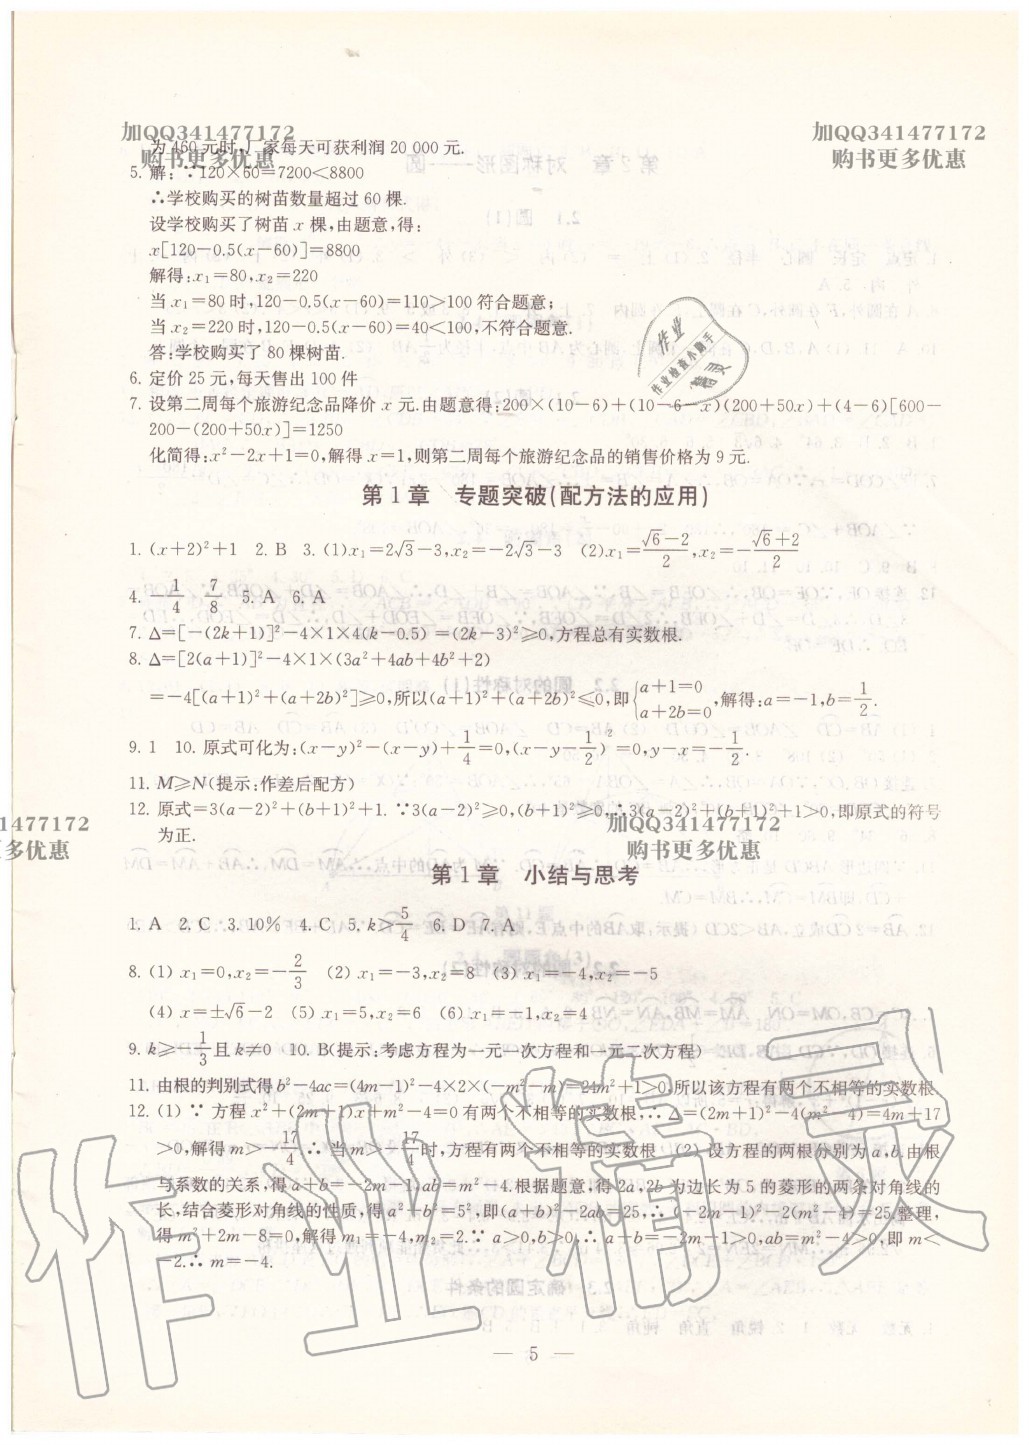 加QQ341477172
购书更多优惠
加QQ341477172
购书更多优惠
为460元时,厂家每天可获利润20 000元.
5. 解:∵120×60=7200<8800
∴学校购买的树苗数量超过60棵.
设学校购买了树苗x棵,由题意,得:
x[120-0.5(x-60)]=8800
解得:x₁=80,x₂=220
当x₁=80时,120-0.5(x-60)=110>100符合题意;
当x₂=220时,120-0.5(x-60)=40<100,不符合题意.
答:学校购买了80棵树苗.
6. 定价25元,每天售出100件
7. 设第二周每个旅游纪念品降价x元.由题意得:200×(10-6)+(10-6-x)(200+50x)+(4-6)[600-
200-(200+50x)]=1250
化简得:x²-2x+1=0,解得x=1,则第二周每个旅游纪念品的销售价格为9元.
作业
作业检查小助手
精灵
第1章 专题突破(配方法的应用)
1. (x+2)²+1 2. B 3. (1)x₁=2√3-3,x₂=-2√3-3 (2)x₁=(√6-2)/2,x₂=-(√6+2)/2
4. -1/4 7/8 5. A 6. A
7. Δ=[-(2k+1)]²-4×1×4(k-0.5)=(2k-3)²≥0,方程总有实数根.
8. Δ=[2(a+1)]²-4×1×(3a²+4ab+4b²+2)
=-4[(a+1)²+(a+2b)²]≥0,所以(a+1)²+(a+2b)²≤0,即{a+1=0 a+2b=0,解得:a=-1,b=1/2.
9. 1 10. 原式可化为:(x-y)²-(x-y)+1/4=0,(x-y-1/2)²=0,y-x=-1/2.
11. M≥N(提示:作差后配方)
12. 原式=3(a-2)²+(b+1)²+1. ∵3(a-2)²≥0,(b+1)²≥0,∴3(a-2)²+(b+1)²+1>0,即原式的符号
为正.
1477172
多优惠
加QQ341477172
购书更多优惠
第1章 小结与思考
1. A 2. C 3. 10% 4. C 5. k≥5/4 6. D 7. A
8. (1) x₁=0,x₂=-2/3 (2) x₁=-3,x₂=8 (3) x₁=-4,x₂=-5
(4) x=±√6-2 (5) x₁=5,x₂=6 (6) x₁=-1,x₂=4
9. k≥-1/3且k≠0 10. B(提示:考虑方程为一元一次方程和一元二次方程)
11. 由根的判别式得b²-4ac=(4m-1)²-4×2×(-m²-m)=24m²+1>0,所以该方程有两个不相等的实数根.
12. (1) ∵ 方程x²+(2m+1)x+m²-4=0有两个不相等的实数根,∴ Δ=(2m+1)²-4(m²-4)=4m+17
>0,解得m>-17/4.∴ 当m>-17/4时,方程有两个不相等的实数根 (2) 设方程的两根分别为a,b.由根
与系数的关系,得a+b=-2m-1,ab=m²-4.根据题意,得2a,2b为边长为5的菱形的两条对角线的
长,结合菱形对角线的性质,得a²+b²=5²,即(a+b)²-2ab=25,∴(-2m-1)²-2(m²-4)=25,整理,
得m²+2m-8=0,解得m₁=-4,m₂=2.∵ a>0,b>0,∴ a+b=-2m-1>0,ab=m²-4>0,即m<
-2.∴ m=-4.
作业精灵
— 5 —